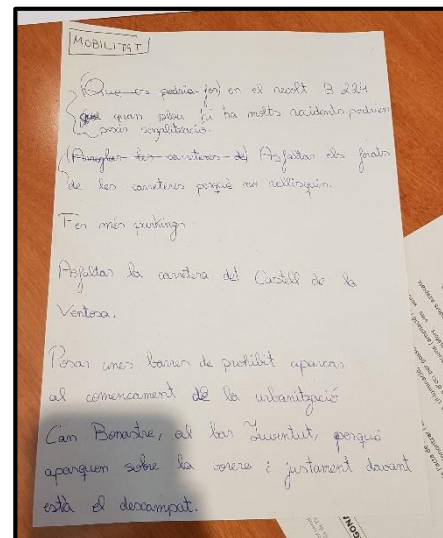 MOBILITAT
(Que es podria fer) en el revolt B 224
que quan plou hi ha molts accidents podrien
posar senyalització.
(Arreglar les carreteres de) Asfaltar els forats
de les carreteres perquè no rellisquin.
Fer més parkings
Asfaltar la carretera del Castell de la
Ventosa.
Posar unes barres de prohibit aparcar
al començament de la urbanització
Can Bonastre, al bar Juventut, perquè
aparquen sobre la vorera i justament davant
està el descampat.